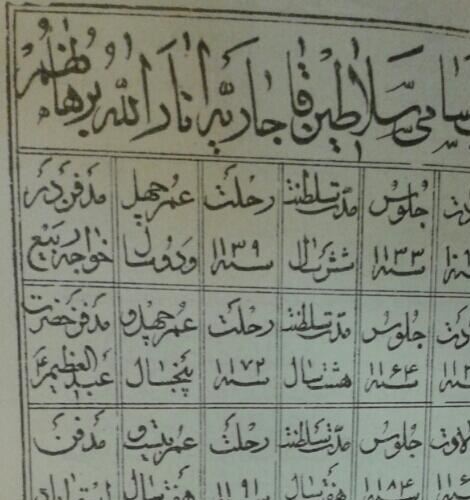 سامی سلاطین قاجاریه انار الله برهانهم
جلوس مدت سلطنت رحلت عمر چهل مدفن در
سنه ۱۱۳۳ شش سال سنه ۱۱۳۹ و دو سال خواجه ربیع
جلوس مدت سلطنت رحلت عمر چهل و مدفن حضرت
سنه ۱۱۶۴ هشت سال سنه ۱۱۷۲ پنجسال عبدالعظیم
جلوس مدت سلطنت رحلت عمر بیست و مدفن
۱۱۸۴ هفت سال ۱۱۹۱ هفت سال استراباد